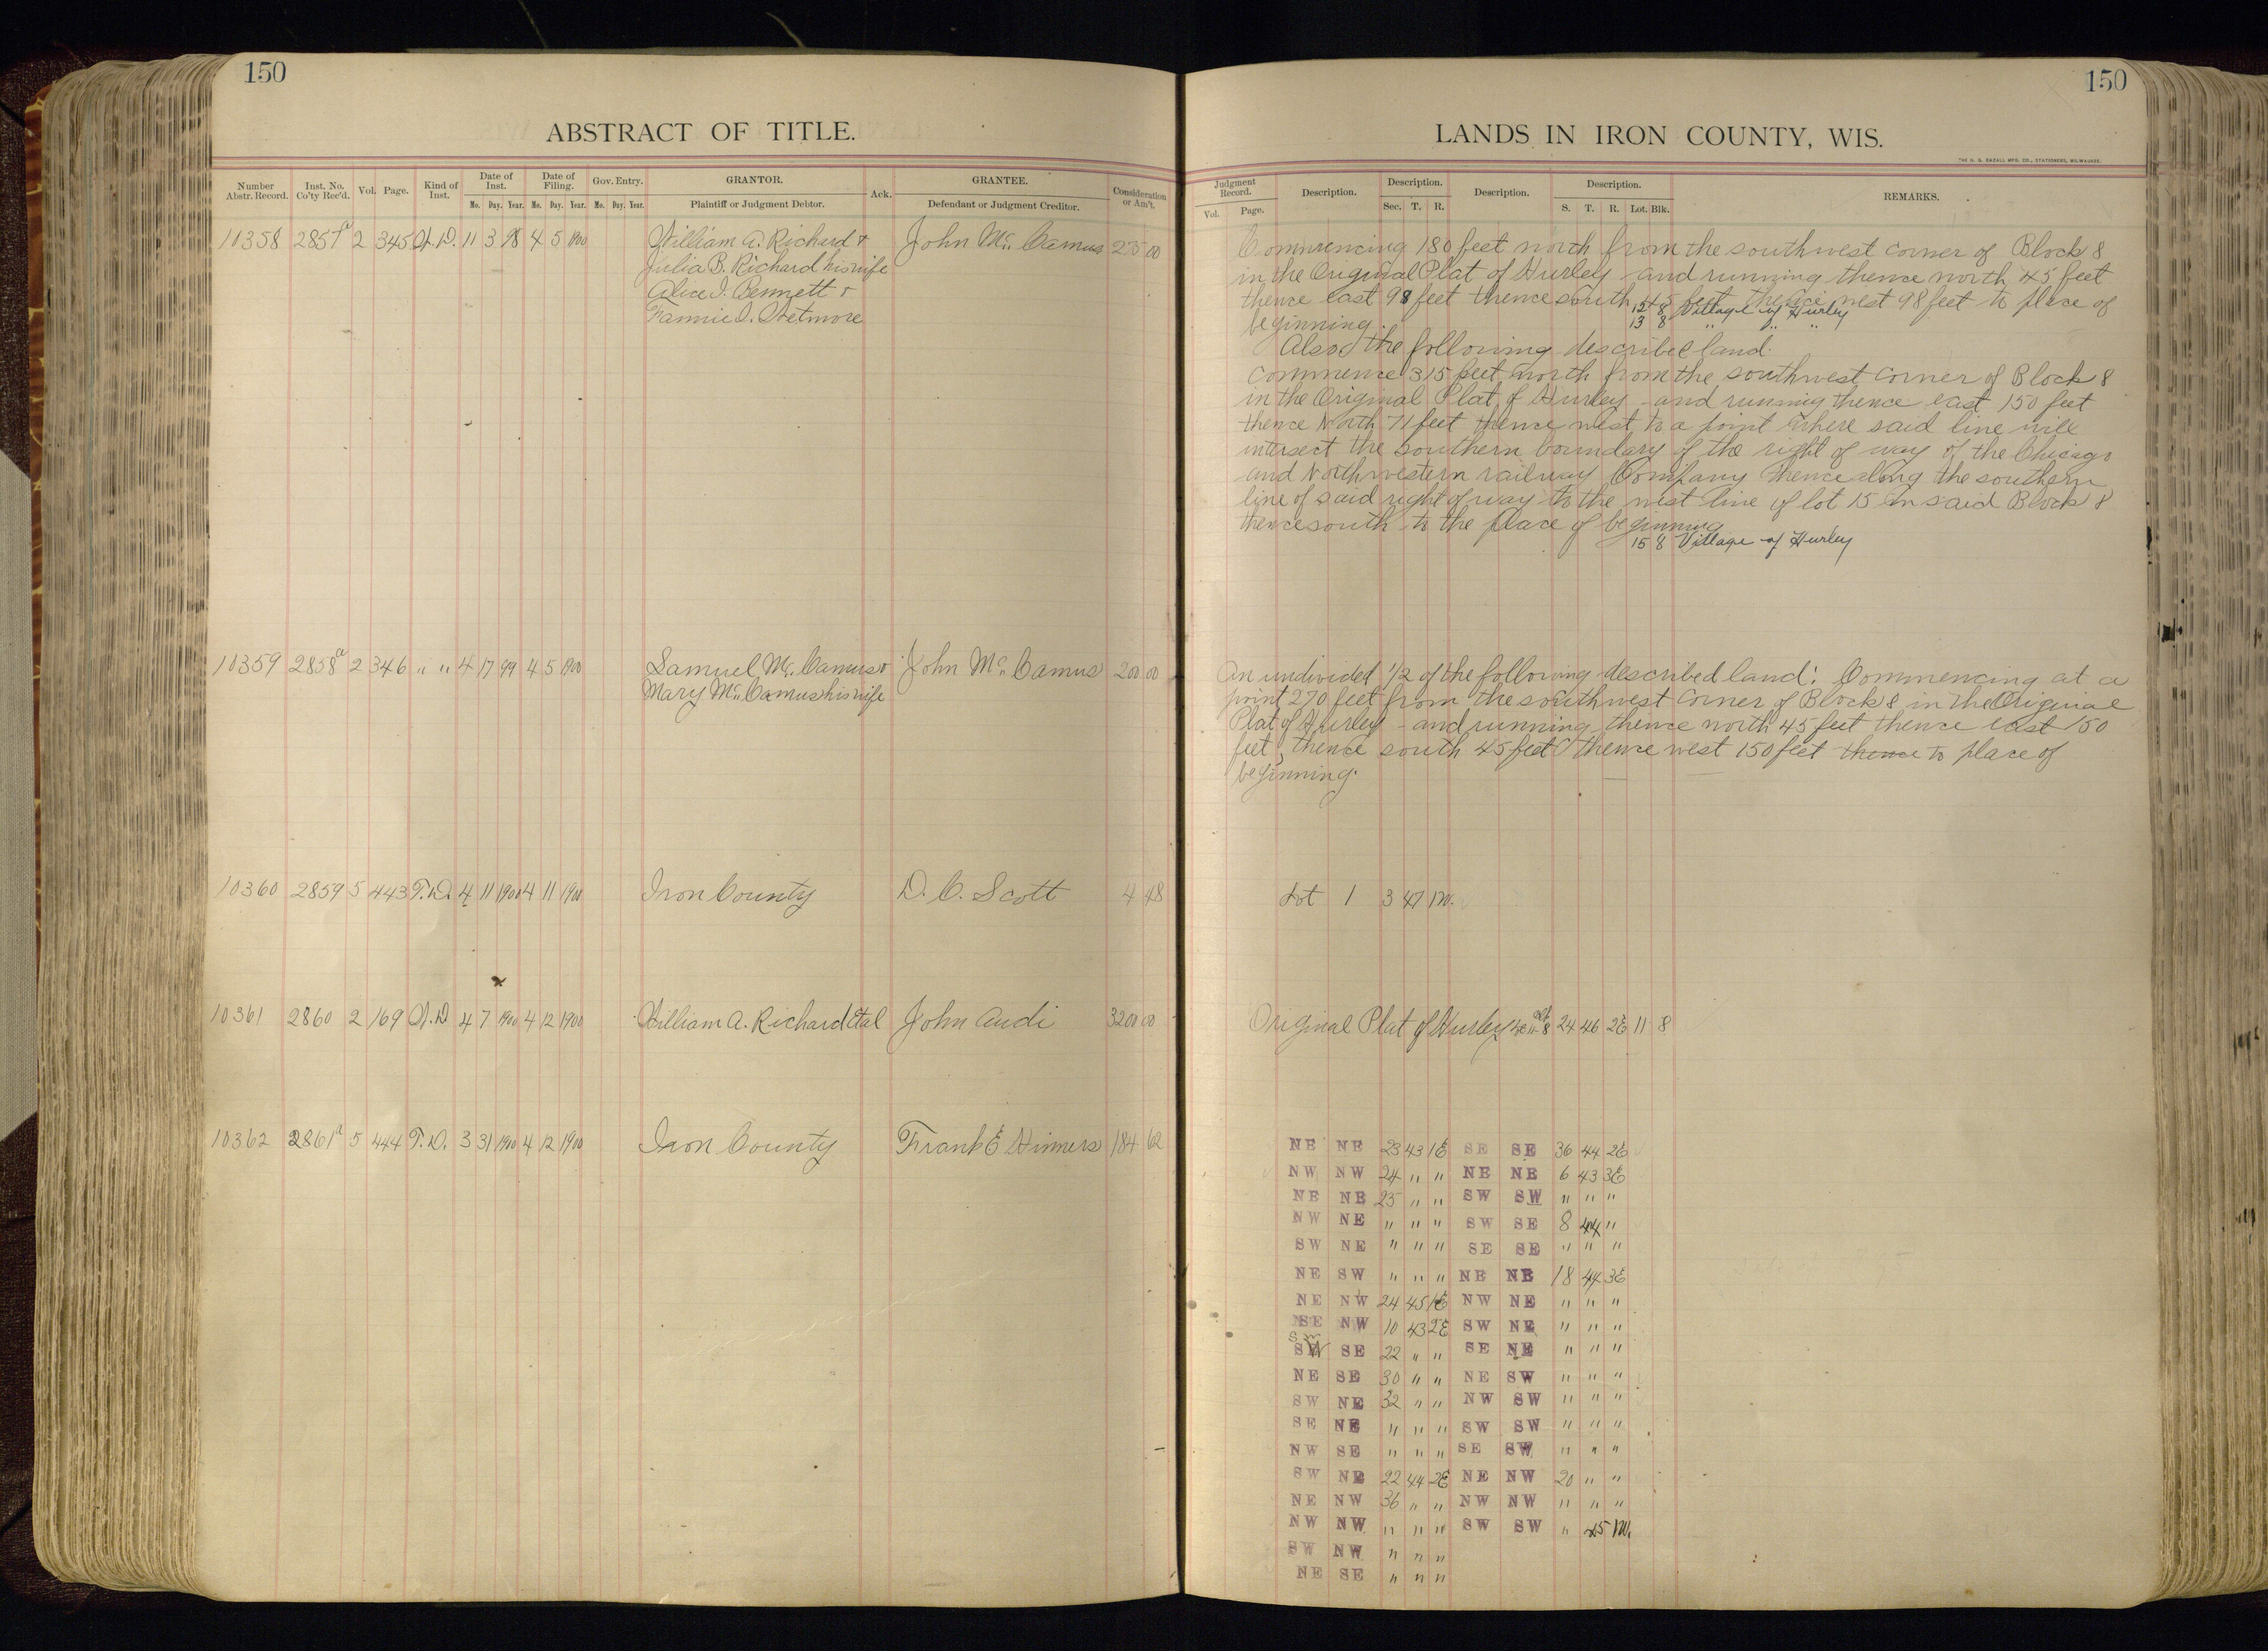 150
ABSTRACT OF TITLE.
Number Abstr. Record. Inst. No. Co'ty Rec'd. Vol. Page. Kind of Inst. Date of Inst. Date of Filing. Gov. Entry. GRANTOR. Ack. GRANTEE. Consideration or Am't.
Mo. Day. Year. Mo. Day. Year. Mo. Day. Year. Plaintiff or Judgment Debtor. Defendant or Judgment Creditor.
10358 2857a 2 345 W.D. 11 3 98 4 5 1900 William A. Richard & John Mc. Camus 275 00
Julia B. Richard his wife
Alice I. Bennett &
Fannie I. Wetmore
10359 2858a 2 346 " " 4 17 99 4 5 1900 Samuel Mc. Camus & John Mc. Camus 200 00
Mary Mc. Camus his wife
10360 2859 5 443 T.D. 4 11 1900 4 11 1900 Iron County D. C. Scott 4 48
10361 2860 2 169 W.D 4 7 1900 4 12 1900 William A. Richard Etal John Audi 3200 00
10362 2861a 5 444 T.D. 3 31 1900 4 12 1900 Iron County Frank E Hinners 184 62
150
LANDS IN IRON COUNTY, WIS.
THE H. G. RAZALL MFG. CO., STATIONERS, MILWAUKEE.
Judgment Record. Description. Description. Description. Description. REMARKS.
Vol. Page. Sec. T. R. S. T. R. Lot. Blk.
Commencing 180 feet north from the southwest corner of Block 8
in the Original Plat of Hurley - and running thence north 45 feet
thence east 98 feet thence south 45 feet thence west 98 feet to place of
12 8 Village of Hurley
beginning.
13 8 " " "
Also the following described land.
Commence 315 feet north from the southwest corner of Block 8
in the Original Plat of Hurley - and running thence east 150 feet
thence North 71 feet thence west to a point where said line will
intersect the southern boundary of the right of way of the Chicago
and Northwestern railway Company thence along the southern
line of said right of way to the west line of lot 15 in said Block 8
thence south to the place of beginning
15 8 Village of Hurley
An undivided 1/2 of the following described land: Commencing at a
point 270 feet from the southwest corner of Block 8 in the Original
Plat of Hurley - and running thence north 45 feet thence east 150
feet, thence south 45 feet thence west 150 feet thence to place of
beginning.
Lot 1 3 47 1W.
Original Plat of Hurley 24 46 2E 11 8
NE NE 23 43 1E SE SE 36 44 2E
NW NW 24 " " NE NE 6 43 3E
NE NE 25 " " SW SW " " "
NW NE " " " SW SE 8 44 "
SW NE " " " SE SE " " "
NE SW " " " NE NE 18 44 3E
NE NW 24 45 1E NW NE " " "
SE NW 10 43 2E SW NE " " "
SW SE 22 " " SE NE " " "
NE SE 30 " " NE SW " " "
SW NE 32 " " NW SW " " "
SE NE " " " SW SW " " "
NW SE " " " SE SW " " "
SW NE 22 44 2E NE NW 20 " "
NE NW 36 " " NW NW " " "
NW NW " " " SW SW " 45 1W.
SW NW " " "
NE SE " " "